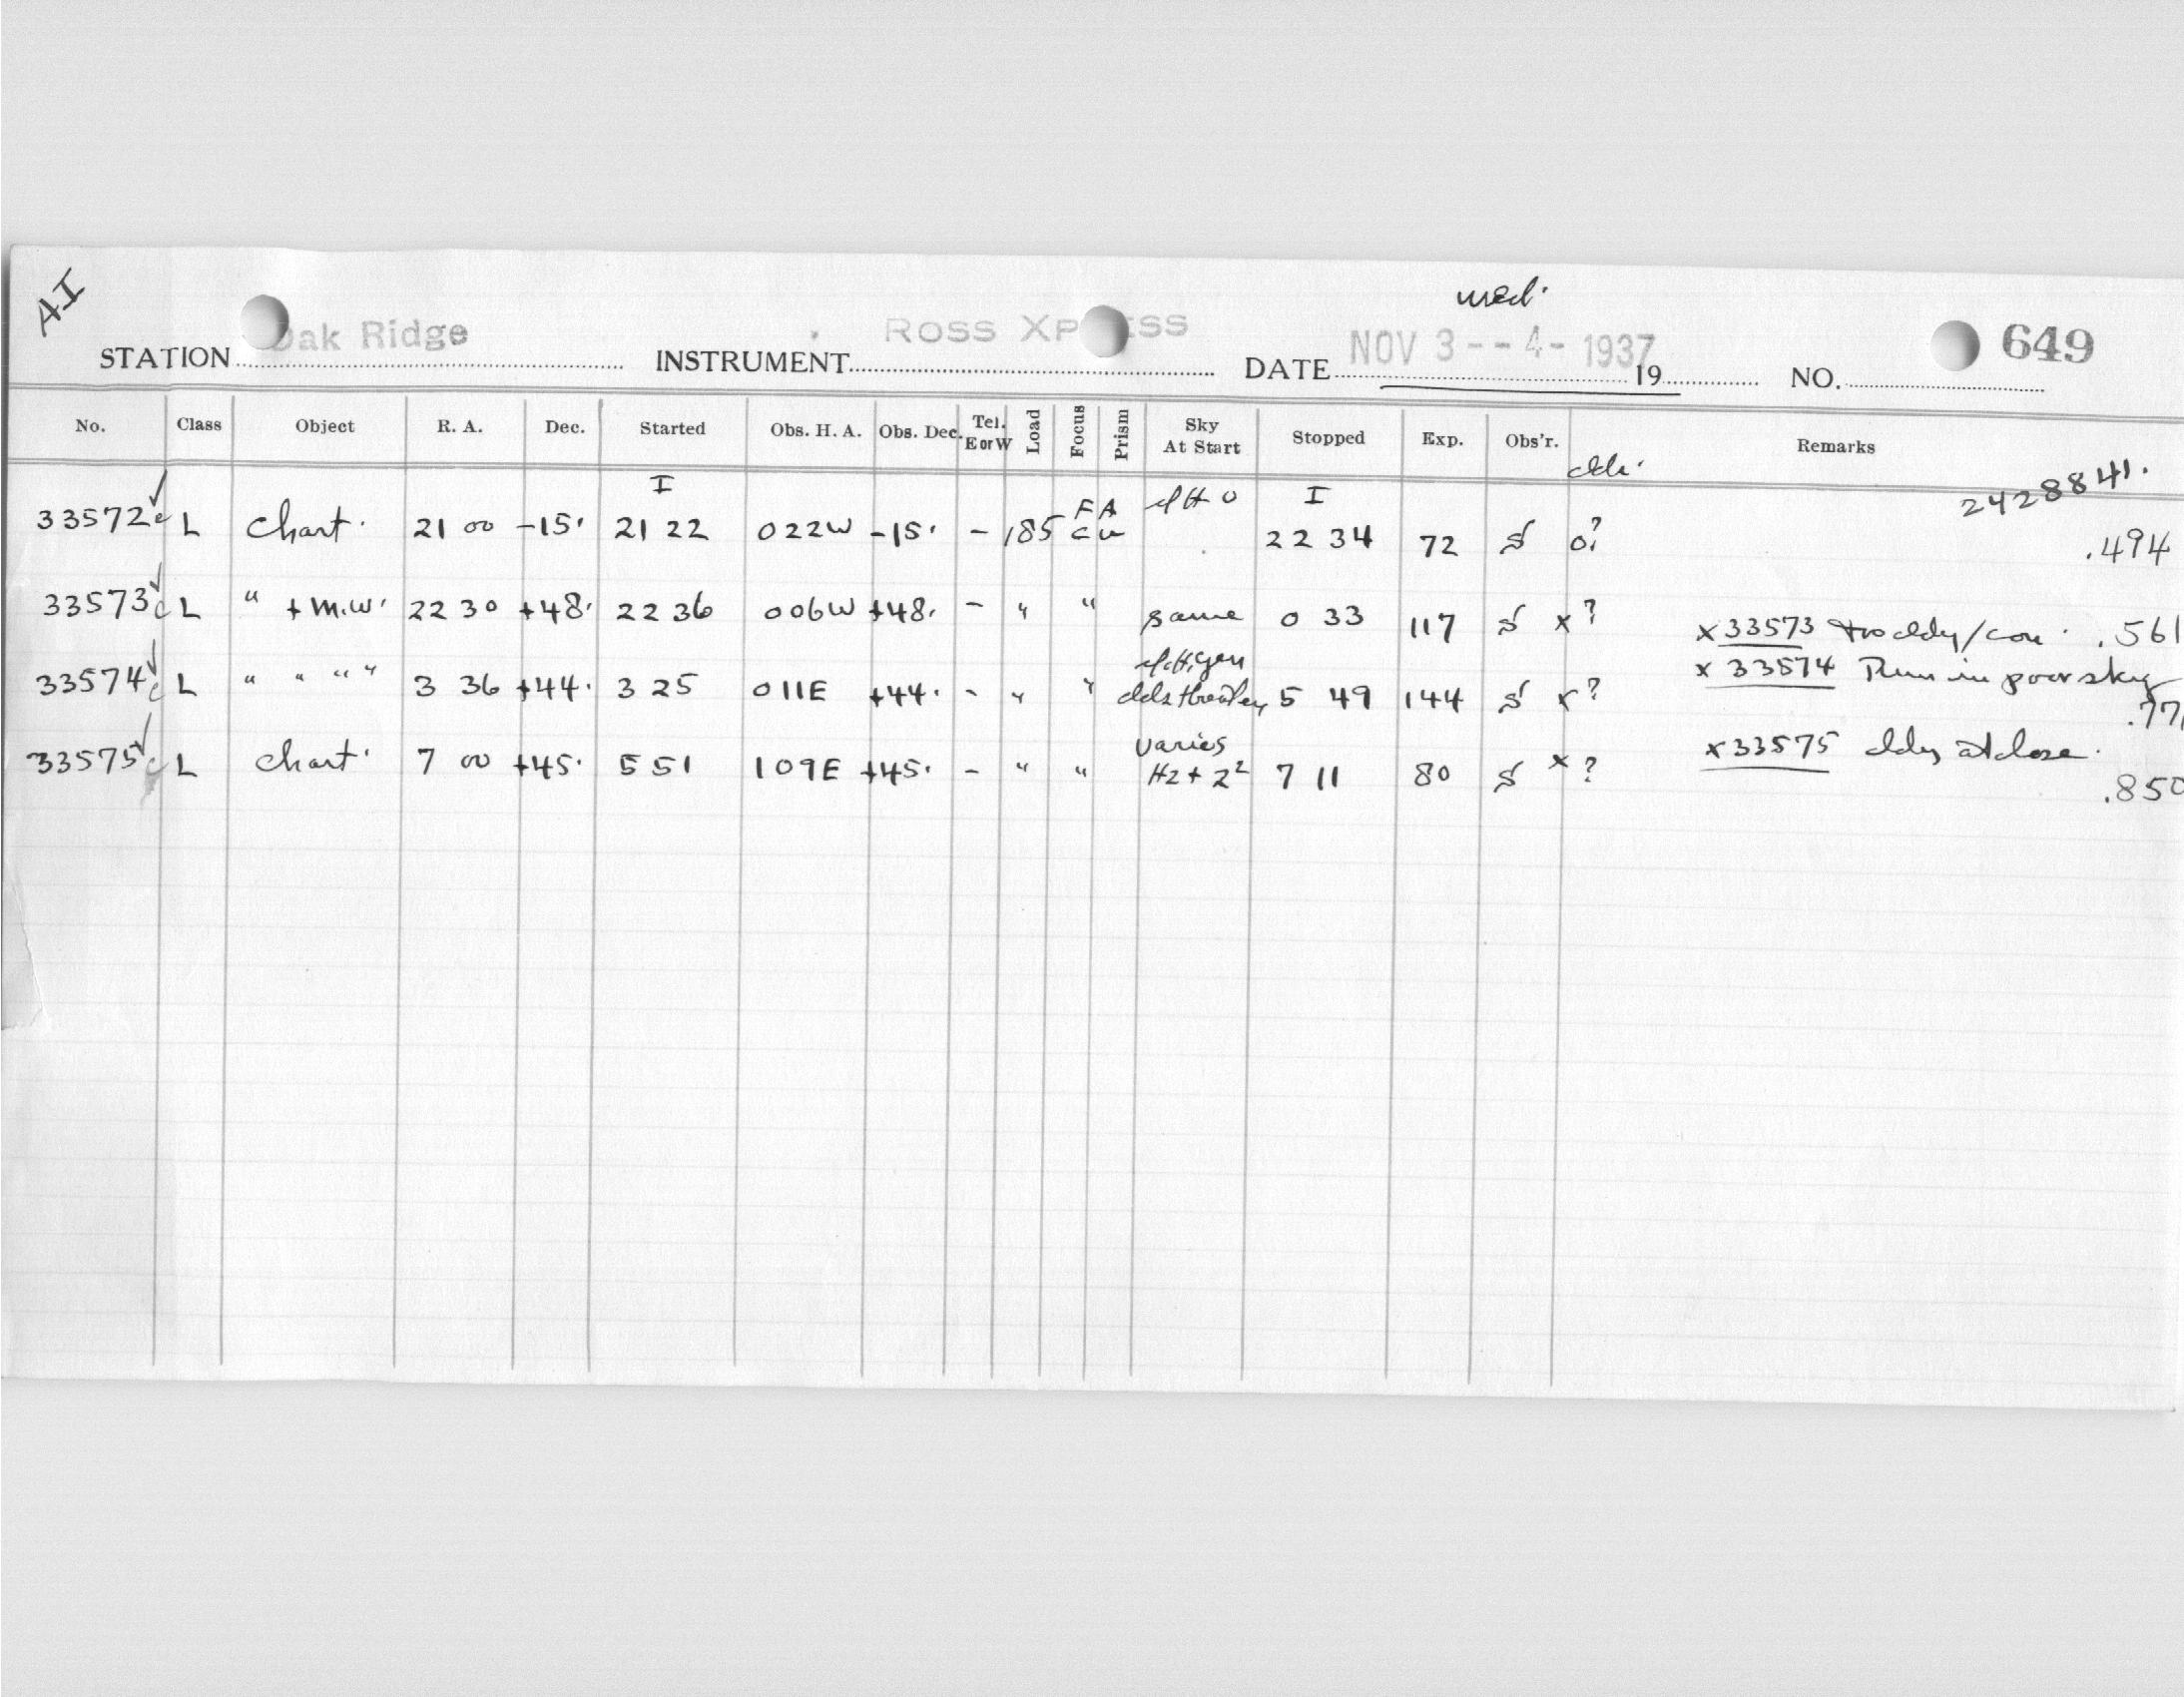 AI
wed.
STATION Oak Ridge INSTRUMENT Ross Xpress DATE NOV 3 -- 4 - 1937 19 NO. 649
No. Class Object R. A. Dec. Started Obs. H. A. Obs. Dec. Tel. E or W Load Focus Prism Sky At Start Stopped Exp. Obs'r. Remarks
2428841.
I F A I
33572 c L Chart. 21 00 -15. 21 22 022W -15. - 185 22 34 72 S o? .494
33573 c L " + M.W. 22 30 +48. 22 36 006W +48. - " " same 0 33 117 S x? x 33573 .561
33574 c L " " " " 3 36 +44. 3 25 011E +44. - " " 5 49 144 S x? x 33574 Thru in poor sky .77
33575 c L Chart. 7 00 +45. 5 51 109E +45. - " " varies Hz + z² 7 11 80 S x? x 33575 cldy at close. .850